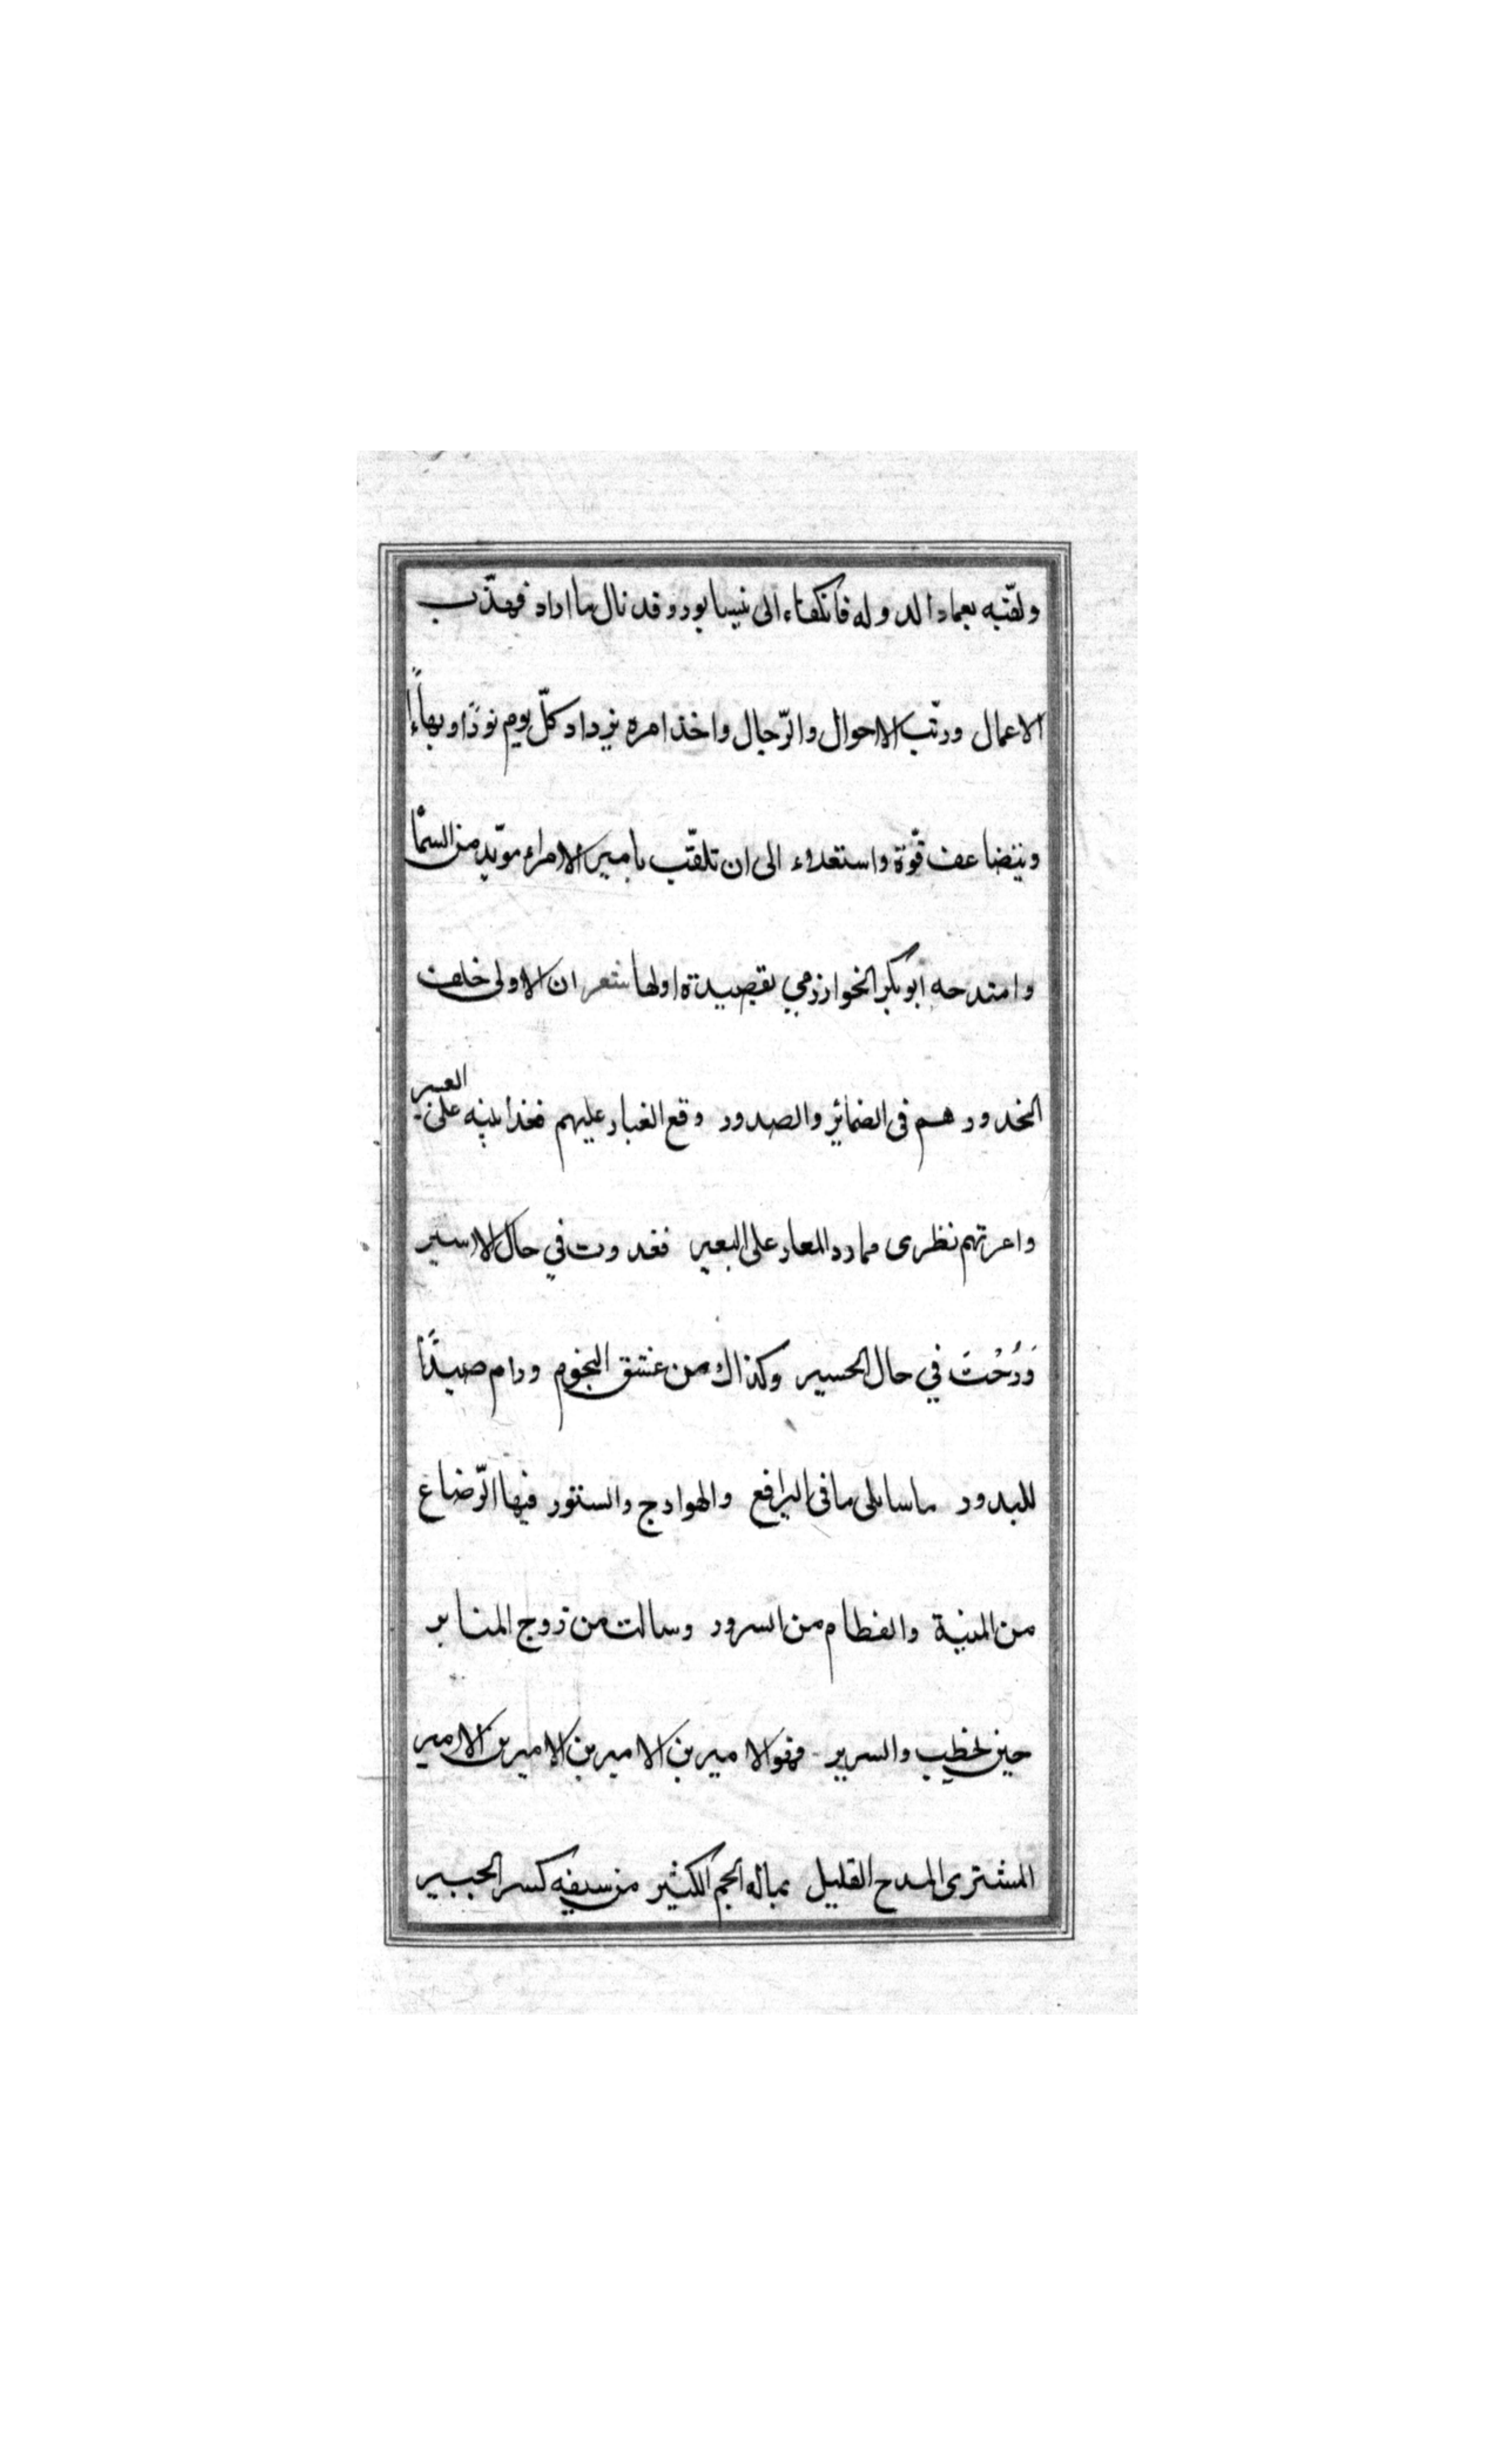 ولقّبه بعماد الدوله فانكفاء الى نيسابور وقد نال ما اراد فهذّب
الاعمال ورتّب الاحوال والرّجال واخذ امره يزداد كلّ يوم نورًا وبهاءً
ويتضاعف قوّة واستعلاء الى ان تلقّب بامير الامراء مويّد من السمآ
وامتدحه ابوبكر الخوارزمي بقصيدة اولها شعر ان الاولى خلف
الخدور هم فى الضمائر والصدور وقع الغبار عليهم فغدا يتيه على العبير
واعرتهم نظرى فما رد المعار على البعير فغدوت في حال الاسير
وَرُحْتَ في حال الحسير وكذاك من عشق النجوم ورام صيدًا
للبدور ما سايلى ما فى البراقع والهوادج والستور فيها الرّضاع
من المنية والفطام من السرور وسالت من زوج المنابر
حين يخطب والسرير فهو الامير بن الامير بن الامير بن الامير
المشترى المدح القليل بماله الجم الكثير من سيفه كسر الجبير